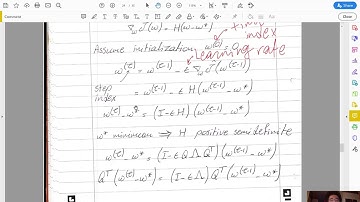 Comment
∇_w J(w) = H(w-w*)
time index
Assume initialization, w^(0) = 0,
Learning rate
w^(τ) = w^(τ-1) - ε ∇_w J(w^(τ-1))
step index = w^(τ-1) - ε H(w^(τ-1) - w*)
w^(τ) - w* = (I-εH)(w^(τ-1) - w*)
w* minimum ⟹ H positive semidefinite
w^(τ) - w* = (I-εQΛQ^T)(w^(τ-1) - w*)
Q^T(w^(τ) - w*) = (I-εΛ)Q^T(w^(τ-1) - w*)